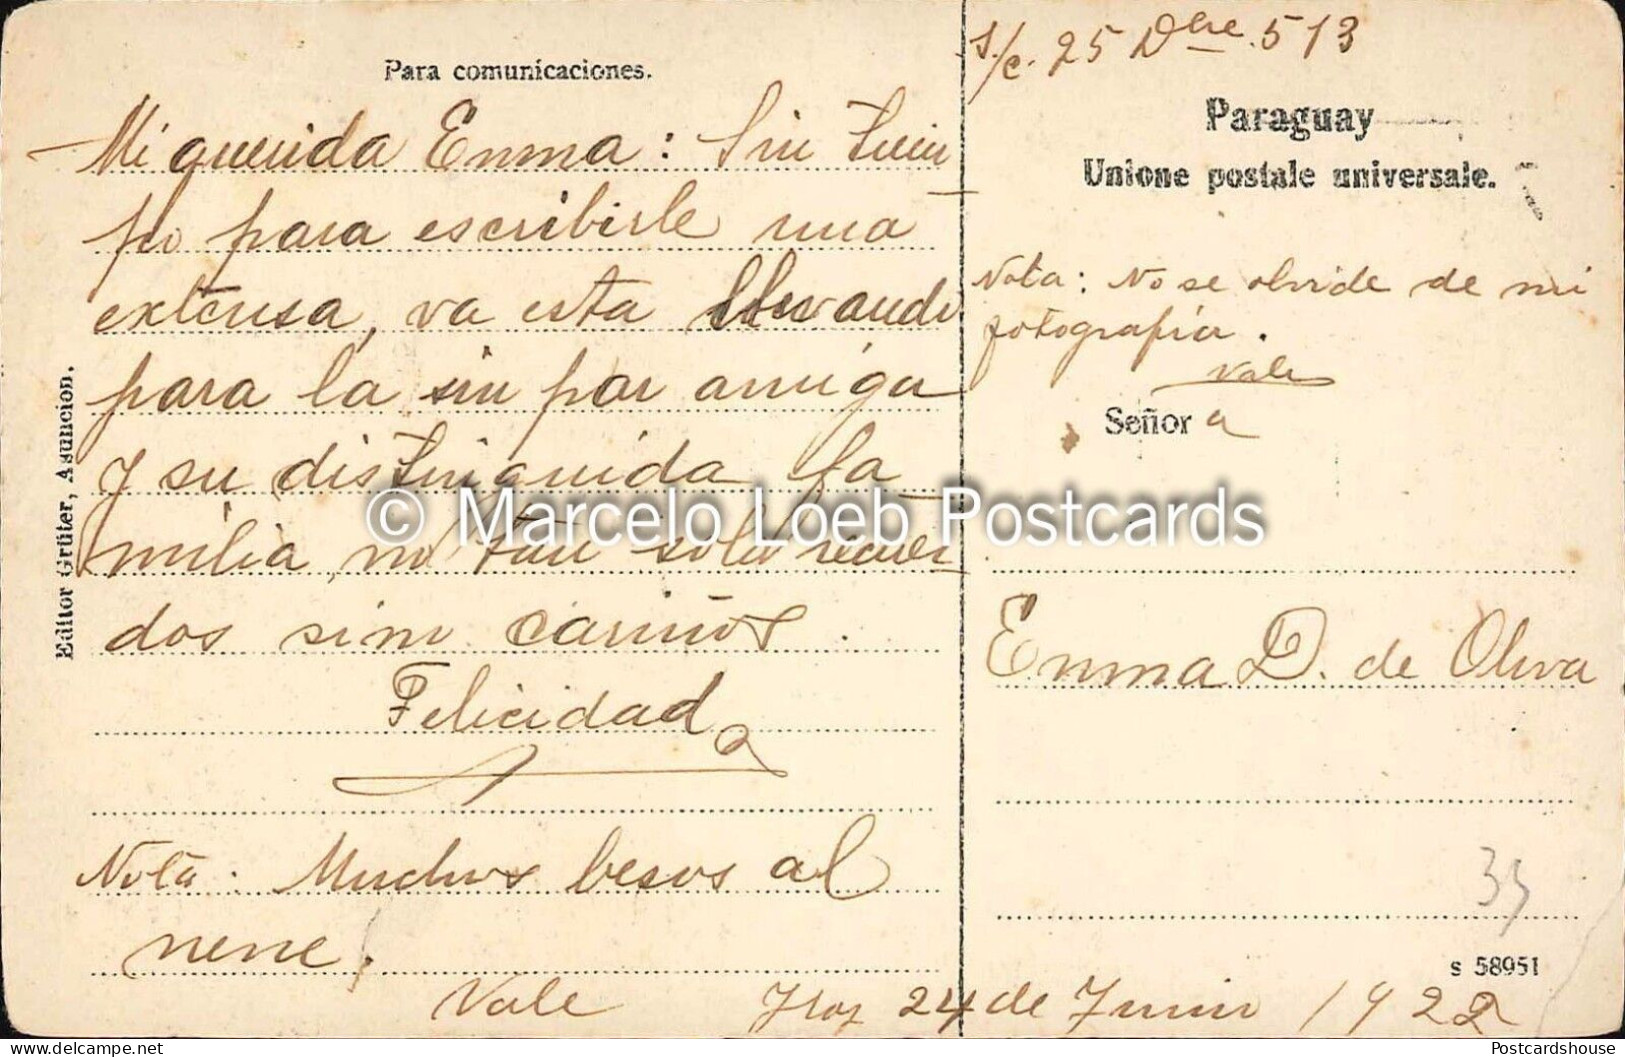 Para comunicaciones.
Mi querida Enma: Sin tiem
po para escribirle una
extensa, va esta llevando
para la sin par amiga
y su distinguida fa
milia, no tan solo recuer
dos sino cariños.
Felicidad
Nota: Muchos besos al
nene.
Vale
24 de Junio 1922
Editor Grüter, Asuncion.
s/c. 25 Dbre. 513
Paraguay
Unione postale universale.
Nota: No se olvide de mi
fotografía.
Vale
Señora
Enma D. de Oliva
s 58951
© Marcelo Loeb Postcards
Postcardshouse